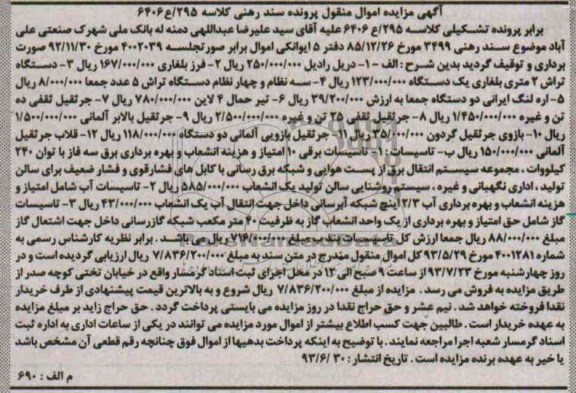 آگهی مزایده اموال منقول پرونده سند رهنی کلاسه ۲۹۵/ع۶۴۰۶
برابر پرونده تشکیلی کلاسه ۲۹۵/ع ۶۴۰۶ علیه آقای سید علیرضا عبداللهی دمنه له بانک ملی شهرک صنعتی علی
آباد موضوع سند رهنی ۳۴۹۹ مورخ ۸۵/۱۲/۲۶ دفتر ۵ ایوانکی اموال برابر صورتجلسه ۴۰۰۲۰۳۹ مورخ ۹۲/۱۱/۳۰ صورت
برداری و توقیف گردید بدین شرح : الف - ۱- دریل رادیل ۲۵۰/۰۰۰/۰۰۰ ریال ۲- فرز بلغاری ۱۶۷/۰۰۰/۰۰۰ ریال ۳- دستگاه
تراش ۲ متری بلغاری یک دستگاه ۱۲۳/۰۰۰/۰۰۰ ریال ۴- سه نظام و چهار نظام دستگاه تراش ۵ عدد جمعا ۸/۰۰۰/۰۰۰ ریال
۵- اره لنگ ایرانی دو دستگاه جمعا به ارزش ۳۹/۲۰۰/۰۰۰ ریال ۶- تیر حمال ۴ لاین ۷۸۰/۰۰۰/۰۰۰ ریال ۷- جرثقیل ثقفی ده
تن و غیره ۱/۴۵۰/۰۰۰/۰۰۰ ریال ۸- جرثقیل ثقفی ۲۵ تن و غیره ۲/۵۰۰/۰۰۰/۰۰۰ ریال ۹- جرثقیل بالابر آلمانی ۱/۵۰۰/۰۰۰/۰۰۰
ریال ۱۰- بازوی جرثقیل گردون ۳۵/۰۰۰/۰۰۰ ریال ۱۱- جرثقیل بازویی آلمانی دو دستگاه ۱۱۸/۰۰۰/۰۰۰ ریال ۱۲- قلاب جرثقیل
آلمانی ۱۵۰/۰۰۰/۰۰۰ ریال ب- تاسیسات : ۱- تاسیسات برقی ۱۰ امتیاز و هزینه انشعاب و بهره برداری برق سه فاز با توان ۲۴۰
کیلووات ، مجموعه سیستم انتقال برق از پست هوایی و شبکه برق رسانی با کابل های فشارقوی و فشار ضعیف برای سالن
تولید ، اداری نگهبانی و غیره ، سیستم روشنایی سالن تولید یک انشعاب ۵۸۵/۰۰۰/۰۰۰ ریال ۲- تاسیسات آب شامل امتیاز و
هزینه انشعاب و بهره برداری آب ۲/۳ اینچ شبکه آبرسانی داخل جهت انتقال آب یک انشعاب ۴۳/۰۰۰/۰۰۰ ریال ۳- تاسیسات
گاز شامل حق امتیاز و بهره برداری از یک واحد انشعاب گاز به ظرفیت ۴۰ متر مکعب شبکه گازرسانی داخل جهت اشتعال گاز
مبلغ ۸۸/۰۰۰/۰۰۰ ریال جمعا ارزش کل تاسیسات تحت مبلغ ریال می باشد . برابر نظریه کارشناس رسمی به
شماره ۴۰۰۱۲۸۱ مورخ ۹۳/۵/۲۹ کل اموال منقول مندرج در متن سند به مبلغ ۷/۸۳۶/۲۰۰/۰۰۰ ریال ارزیابی گردیده است و در
روز چهارشنبه مورخ ۹۳/۷/۲۳ از ساعت ۹ صبح الی ۱۲ در محل اجرای ثبت اسناد گرمسار واقع در خیابان تختی کوچه صدر از
طریق مزایده به فروش می رسد . مزایده از مبلغ ۷/۸۳۶/۲۰۰/۰۰۰ ریال شروع و به بالاترین قیمت پیشنهادی از طرف خریدار
نقدا فروخته خواهد شد . نیم عشر و حق حراج نقدا در روز مزایده می بایستی پرداخت گردد . حق حراج زاید بر مبلغ مزایده
به عهده خریدار است . طالبین جهت کسب اطلاع بیشتر از اموال مورد مزایده می توانند در یکی از ساعات اداری به اداره ثبت
اسناد گرمسار شعبه اجرا مراجعه نمایند . با توضیح به اینکه پرداخت بدهیها از اموال فوق چنانچه رقم قطعی آن مشخص باشد
یا خیر به عهده برنده مزایده است . تاریخ انتشار : ۹۳/۶/۳۰
م الف : ۶۹۰